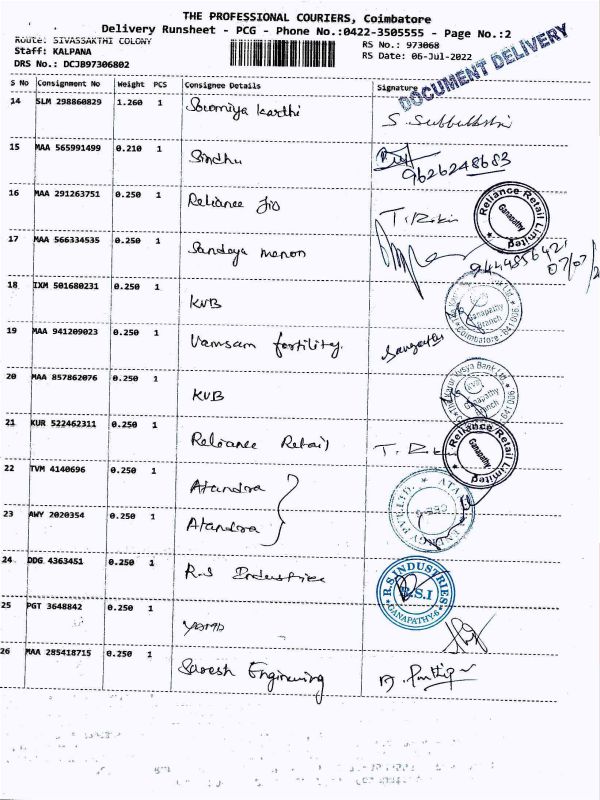 THE PROFESSIONAL COURIERS, Coimbatore
Delivery Runsheet - PCG - Phone No.:0422-3505555 - Page No.:2
Route: SIVASSAKTHI COLONY
RS No.: 973068
Staff: KALPANA
RS Date: 06-Jul-2022
DRS No.: DCJB97306802
DOCUMENT DELIVERY
S No Consignment No Weight PCS Consignee Details Signature
14 SLM 298860829 1.260 1 Sowmiya Karthi
15 MAA 565991499 0.210 1 Sindhu 9626248683
16 MAA 291263751 0.250 1 Reliance Jio
Reliance Retail Limited Ganapathy
17 MAA 566334535 0.250 1 Sandeya menon
18 IXM 501680231 0.250 1 KVB
Ganapathy Branch Coimbatore - 641 006
19 MAA 941209023 0.250 1 Vamsam fertility.
20 MAA 857862076 0.250 1 KVB
The Karur Vysya Bank Ltd. KVB Ganapathy Branch 641 006
21 KUR 522462311 0.250 1 Reliance Retail
Reliance Retail Limited Ganapathy
22 TVM 4140696 0.250 1 Atandra
23 AWY 2020354 0.250 1 Atandra
24 DDG 4363451 0.250 1 R.S Industries
R.S INDUSTRIES R.S.I GANAPATHY-6
25 PGT 3648842 0.250 1
26 MAA 285418715 0.250 1 Saresh Engineering